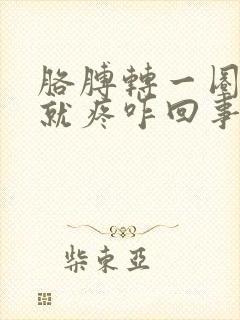 胳膊转一圈
就疼咋回事
柴东亚